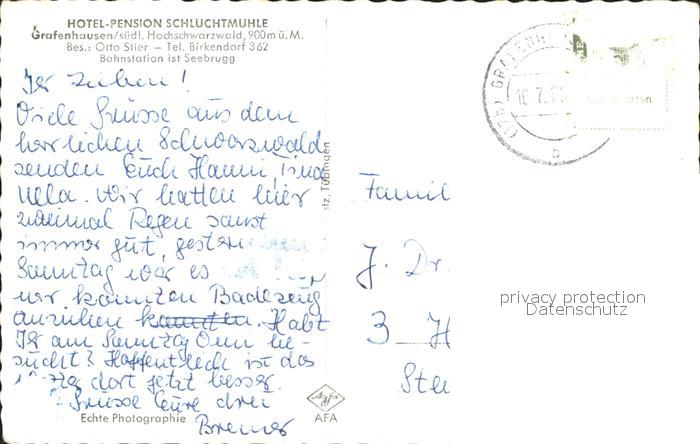 HOTEL-PENSION SCHLUCHTMÜHLE
Grafenhausen/südl. Hochschwarzwald, 900m ü. M.
Bes.: Otto Stier – Tel. Birkendorf 362
Bahnstation ist Seebrugg
Ihr Lieben!
Viele Grüsse aus dem
herrlichen Schwarzwald
senden Euch Hanni,
Wir hatten hier
zweimal Regen sonst
immer gut, gestern
Sonntag war es
wir konnten Badezeug
anziehen konnten. Habt
Ihr am Sonntag Omi be-
sucht? Hoffentlich ist das
dort jetzt besser.
Grüsse Eure drei
Bremer
Echte Photographie
AFA
Tübingen
(17b) GRAFENH
10.7.6
b
Famil
J. Dr.
3 H
Ste
privacy protection
Datenschutz